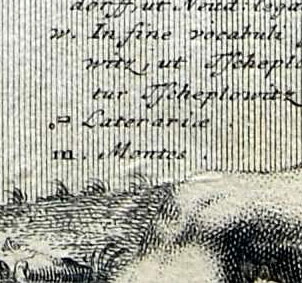 dorff, ut Neud: lega
w. In fine vocabuli
witz, ut Tscheplo
tur Tscheplowitz
Laterariæ
m. Montes.